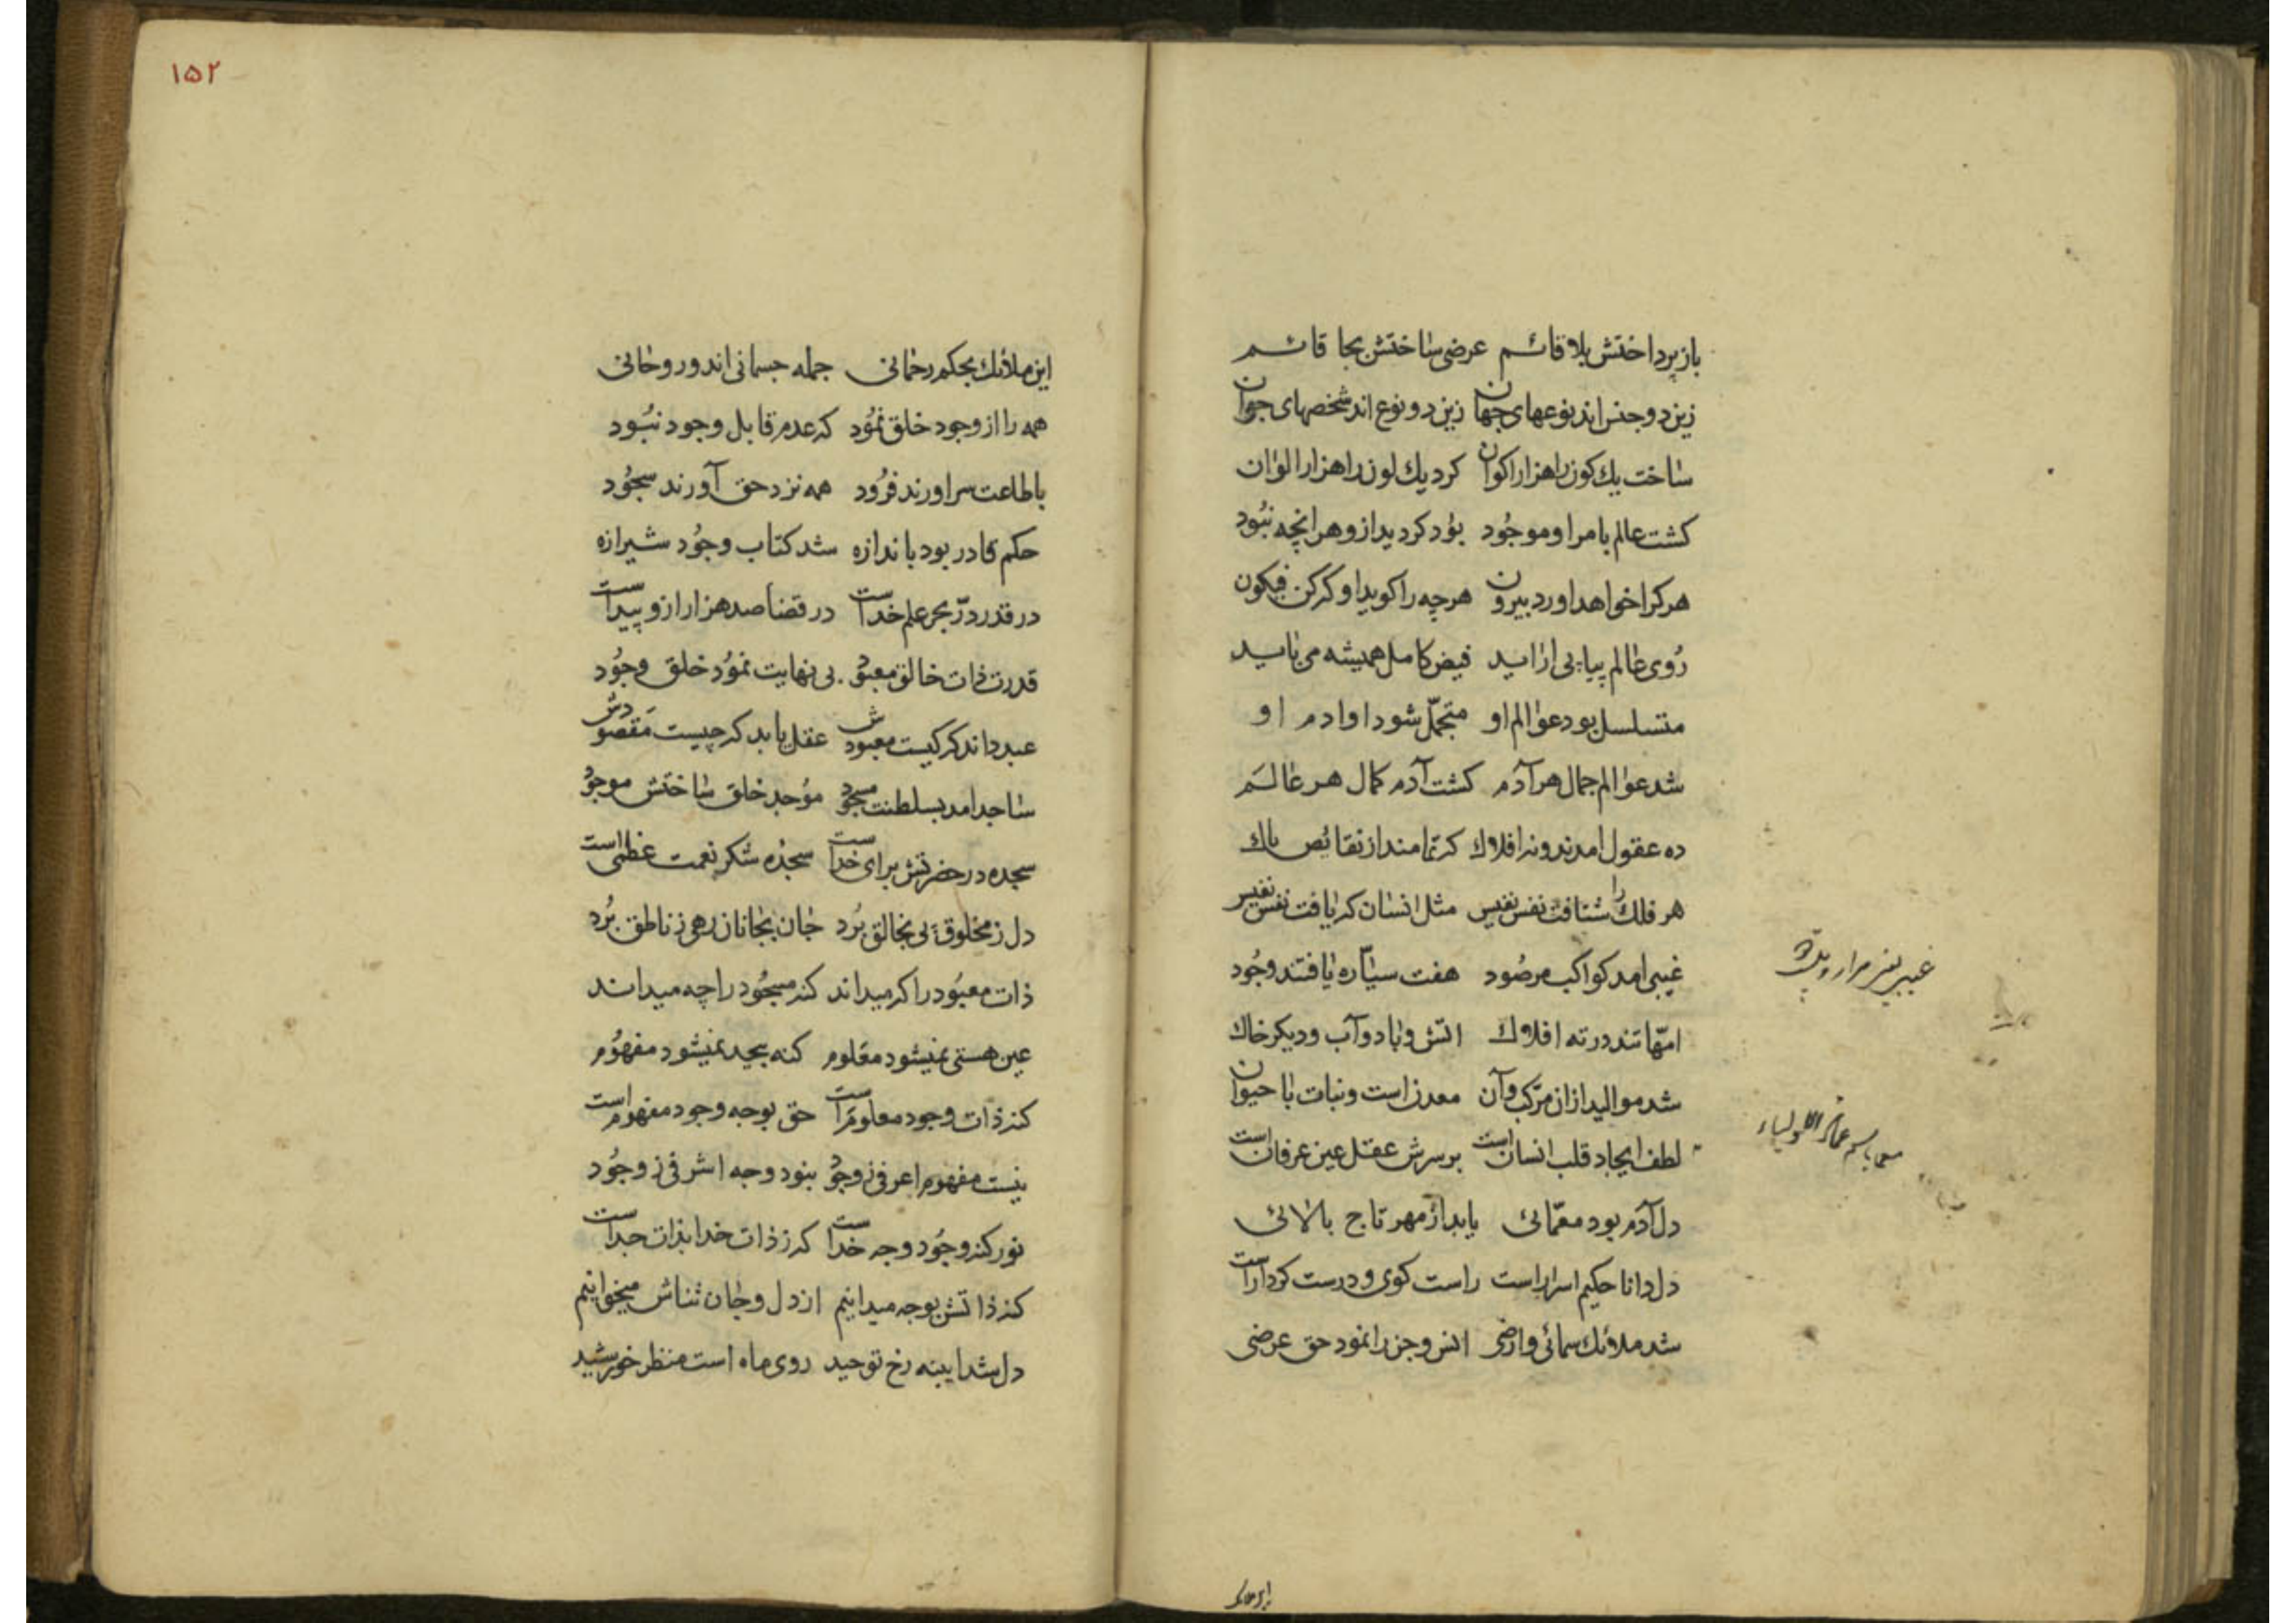 باز پرداختش بلا قائم عرضی ساختش بجا قائم
زین دو جنس اند نوعهای جهان زین دو نوع اند شخصهای جوان
ساخت یك کون را هزار اکوان کرد یك لون را هزار الوان
کشت عالم بامر او موجود بود کردید ازو هر انچه نبود
هر کرا خواهد اورد بیرون هر چه را کوید او که کن فیکون
روی عالم پیاپی اراید فیض کامل همیشه می یابد
متسلسل بود عوالم او متجمل شود اوادم او
شد عوالم جمال هر آدم کشت آدم کمال هر عالم
ده عقول امدند و نه افلاك که تمامند از نقائص پاك
هر فلك را شتافت نفس نفیس مثل انسان که یافت نفس نفیس
غیبی امد کواکب مرصود هفت سیاره یافتند وجود
امهاتند در ته افلاك اتش و باد و آب و دیکر خاك
شد موالید ازان مرکب و آن معدن است و نبات با حیوان
لطف ایجاد قلب انسان است بر سرش عقل عین عرفان است
دل آدم بود معمائی یابد از مهر تاج بالائی
دل دانا حکیم اسرار است راست کوی و درست کردار است
شد ملائك سمائی و ارضی انس و جن را نمود حق عرضی
این ملائك بحکم رحمانی جمله جسمانی اند و روحانی
همه را از وجود خلق نمود که عدم قابل وجود نبود
باطاعت سر اورند فرود همه نزد حق آورند سجود
حکم قادر بود باندازه شد کتاب وجود شیرازه
در قدر در بحر علم خداست در قضا صد هزار ازو پیداست
قدرت ذات خالق معبود بی نهایت نمود خلق وجود
عبد داند که کیست معبودش عقل یابد که چیست مقصودش
ساجد امد بسلطنت مسجود موجد خلق ساختش موجود
سجده در حضرتش برای خداست سجده شکر نعمت عظمی است
دل ز مخلوق پی بخالق برد جان بجانان رهی ز ناطق برد
ذات معبود را که میداند کنه مسجود را چه میداند
عین هستی نمیشود معلوم کنه بیحد نمیشود مفهوم
کنه ذات وجود معلوم است حق بوجه وجود مفهوم است
نیست مفهوم اعرفی ز وجود بنود وجه اشرفی ز وجود
نور کنه وجود وجه خداست که ز ذات خدا بذات جداست
کنه ذاتش بوجه میدانیم از دل و جان ثناش میخوانیم
دل شد ایینه رخ توحید روی ماه است منظر خورشید
۱۵۲